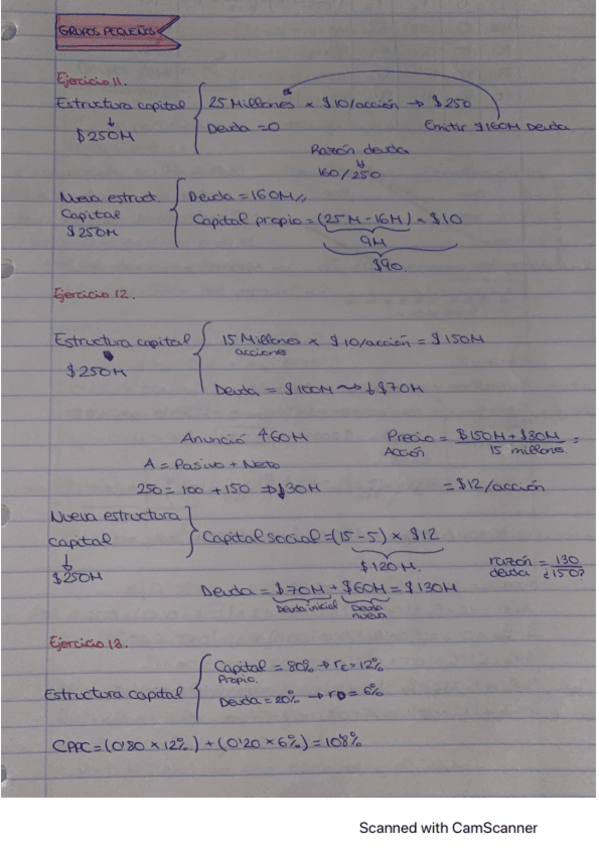 GRUPOS PEQUEÑOS
Ejercicio 11.
Estructura capital { 25 Millones × $10/acción → $250
↓
$250M
Deuda = 0
Emitir $160M Deuda
Razón deuda
↓
160/250
Nueva estruct. { Deuda = 160M//
Capital
$250M
Capital propio = (25M - 16M) × $10
9M
$90
Ejercicio 12.
Estructura capital { 15 Millones × $10/acción = $150M
acciones
$250M
Deuda = $100M ⤳ ↓$70M
Anunció ↑60M
Precio Acción = $150M + $30M / 15 millones. =
A = Pasivo + Neto
250 = 100 + 150 ⇒ ↓30M
= $12/acción
Nueva estructura
Capital } Capital social = (15 - 5) × $12
↓
$250M
$120M.
razón deuda = 130 / ¿150?
Deuda = $70M + $60M = $130M
Deuda inicial Deuda nueva
Ejercicio 13.
Estructura capital { Capital = 80% → rc = 12%
Propio.
Deuda = 20% → rD = 6%
CPPC = (0'80 × 12%) + (0'20 × 6%) = 10'8%
Scanned with CamScanner